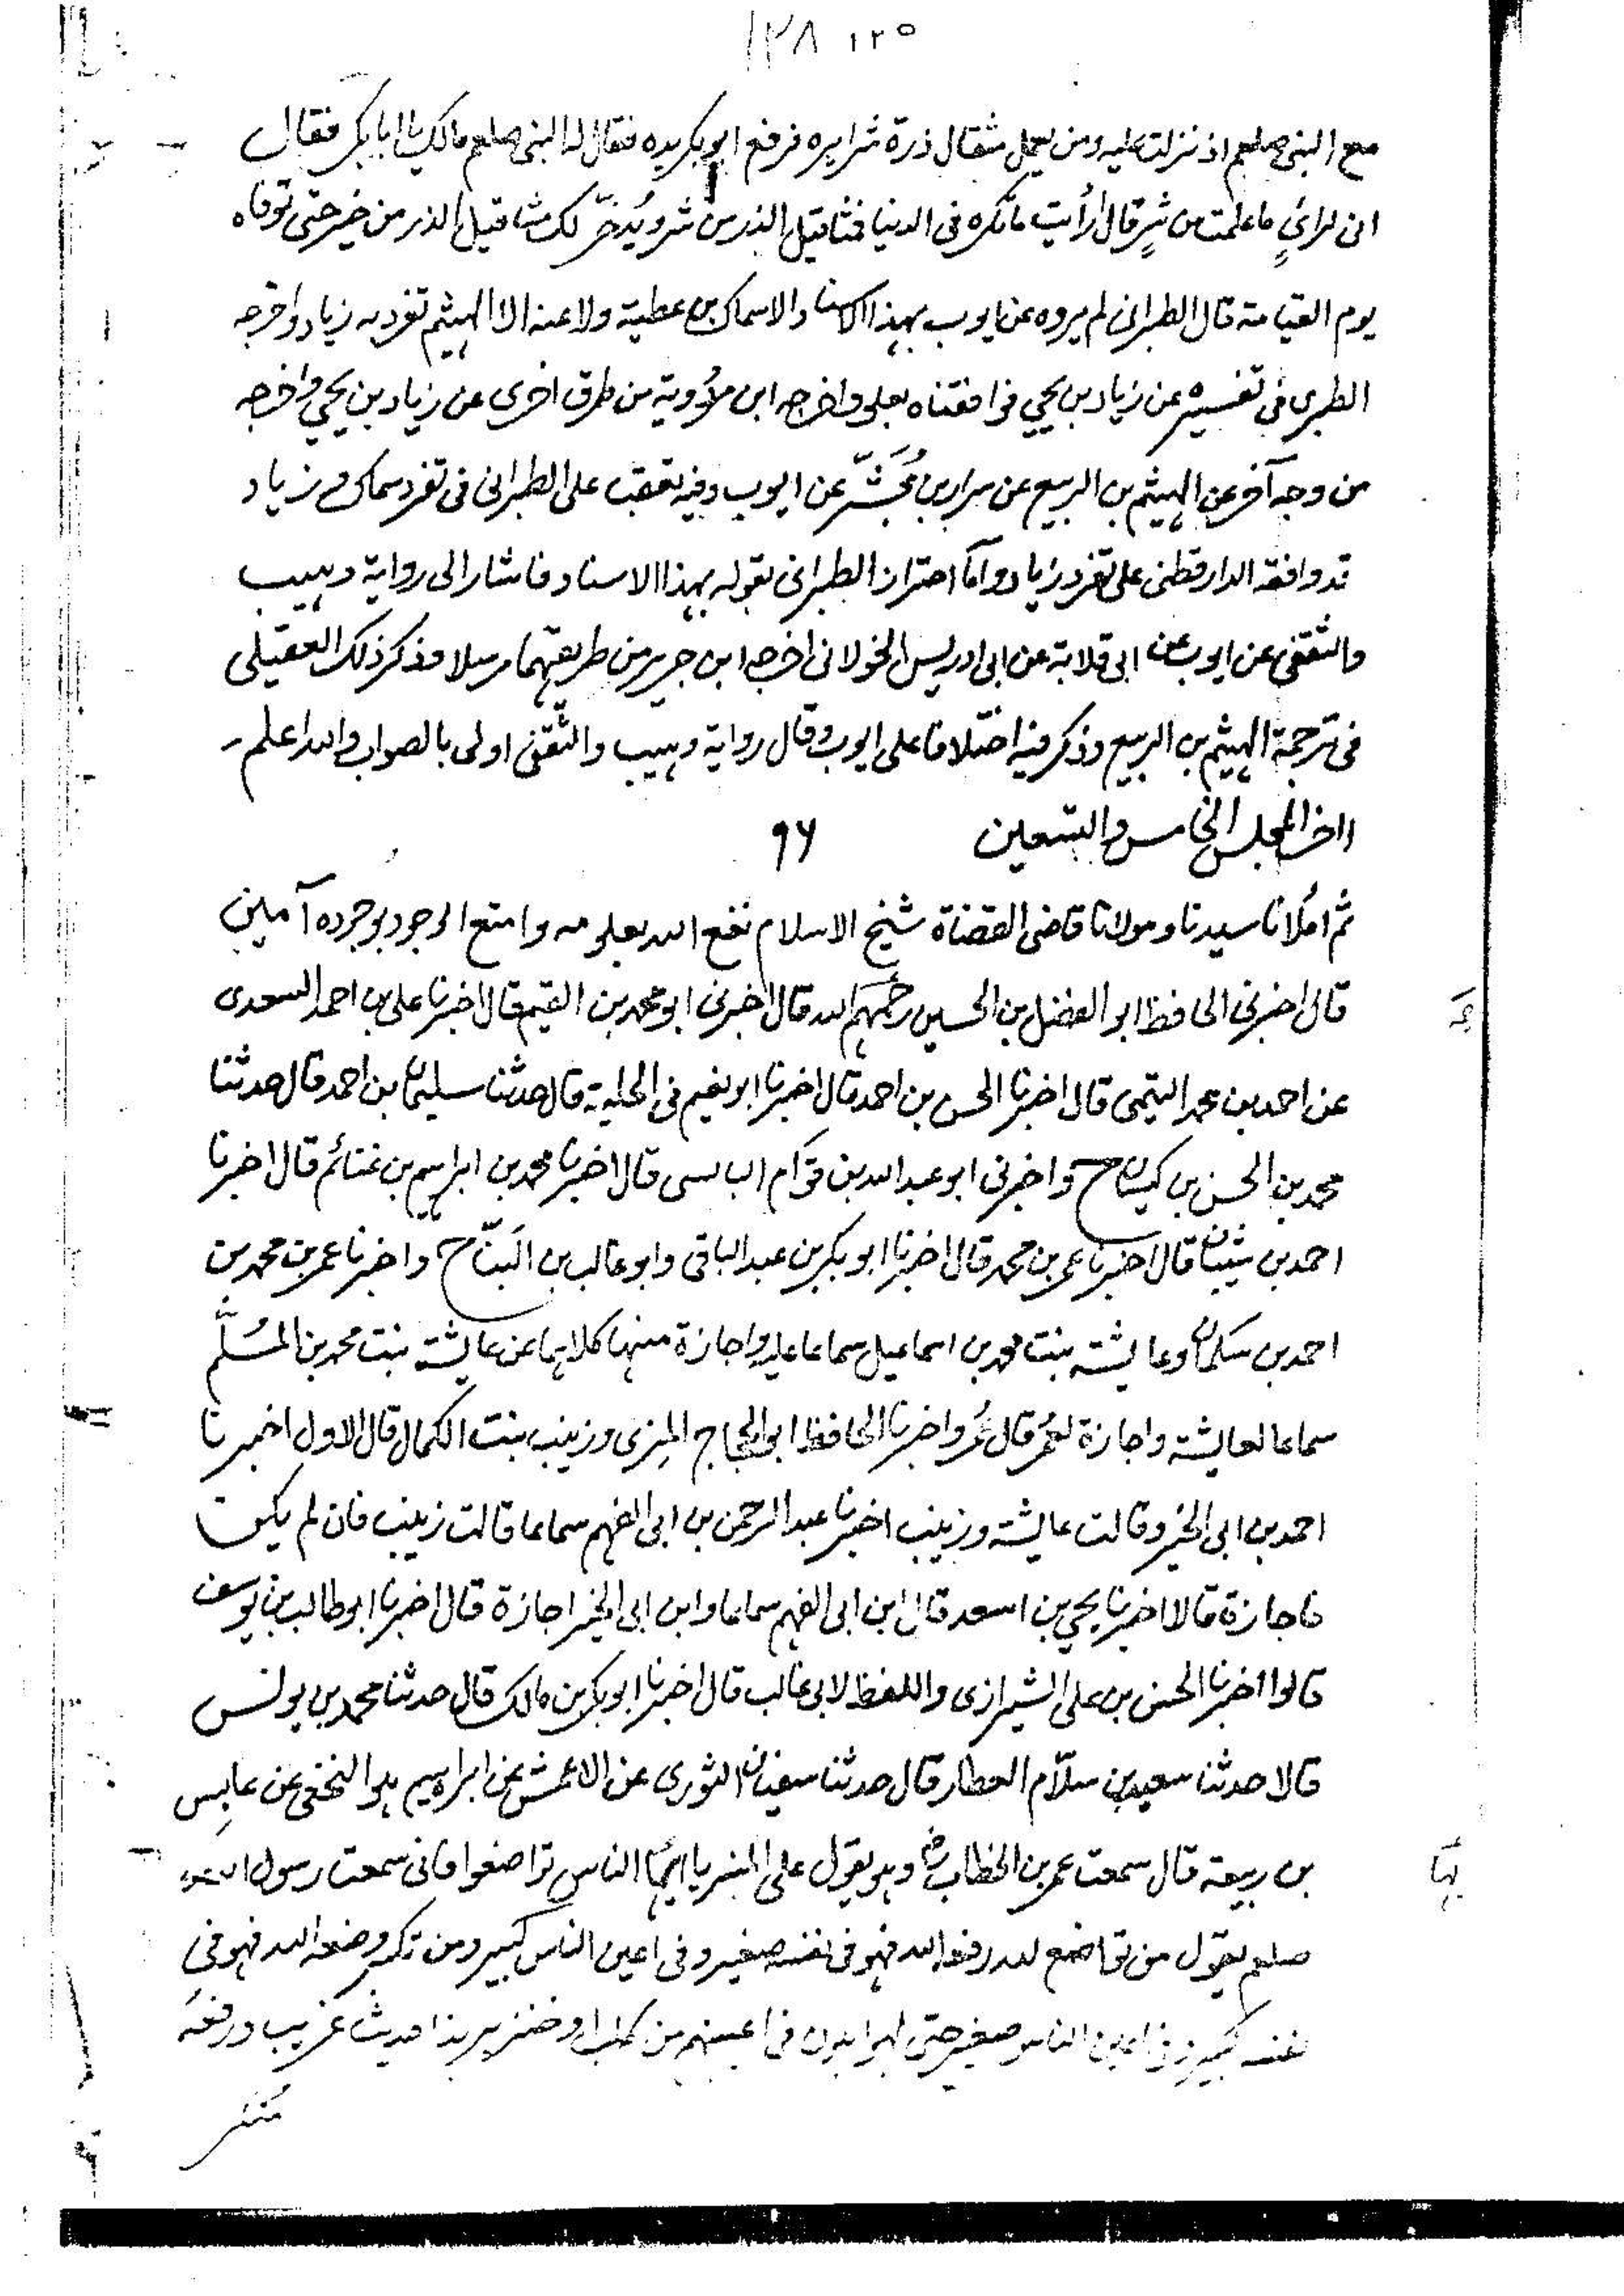 ١٢٨ ١٢٥
مع النبي صلعم اذ نزلت عليه ومن يعمل مثقال ذرة شرا يره فرفع ابو بكر يده فقال له النبي صلعم مالك يا ابا بكر فقال
اني لرائي ما عملت من شر قال أرأيت ما تكره في الدنيا فمثاقيل الذر من شر ويُدخر لك مثاقيل الذر من خير حتى توفاه
يوم القيامة قال الطبراني لم يروه عن ايوب بهذا الاسناد الا سماك بن عطية ولا عنه الا الهيثم تفرد به زياد واخرجه
الطبري في تفسيره عن زياد بن يحيي فوافقناه بعلو واخرجه ابن مردوية من طرق اخرى عن زياد بن يحيي واخرجه
من وجه آخر عن الهيثم بن الربيع عن مرار بن مُجَشّر عن ايوب وفيه تعقب على الطبراني في تفرد سماك و زياد
قد وافقه الدارقطني على تفرد زياد واما احتراز الطبراني بقوله بهذا الاسناد فاشار الى رواية وهيب
والثقفي عن ايوب عن ابي قلابة عن ابي ادريس الخولاني اخرجه ابن جرير من طريقهما مرسلا وذكر ذلك العقيلي
في ترجمة الهيثم بن الربيع وذكر فيه اختلافا على ايوب وقال رواية وهيب والثقفي اولى بالصواب والله اعلم
اخر المجلس الخامس والتسعين ٩٦
ثم املانا سيدنا ومولانا قاضي القضاة شيخ الاسلام نفع الله بعلومه وامتع الوجود بوجوده آمين
قال اخبرني الحافظ ابو الفضل بن الحسين رحمهم الله قال اخبرني ابو محمد بن القيم قال اخبرنا علي بن احمد السعدي
عن احمد بن محمد التيمى قال اخبرنا الحسن بن احمد قال اخبرنا ابو نعيم في الحلية قال حدثنا سليمان بن احمد قال حدثنا
محمد بن الحسن بن كيسان ح واخبرني ابو عبد الله بن قوام البالسى قال اخبرنا محمد بن ابراهيم بن غنائم قال اخبرنا
احمد بن شيبان قال اخبرنا عمر بن محمد قال اخبرنا ابو بكر بن عبد الباقي وابو غالب بن البَنّا ح واخبرنا عمر بن محمد بن
احمد بن سلمان وعايشة بنت محمد بن اسماعيل سماعا عليه واجازة منها كلاهما عن عايشة بنت محمد بن المُسَلَّم
سماعا لعايشة واجازة لعُمر قال عُمر واخبرنا الحافظ ابو الحجاج المِزي وزينب بنت الكمال قال الاول اخبرنا
احمد بن ابي الخير وقالت عايشة وزينب اخبرنا عبد الرحمن بن ابي الفهم سماعا قالت زينب فان لم يكن
فاجازة قالا اخبرنا يحيي بن اسعد قال ابن ابي الفهم سماعا وابن ابي الخير اجازة قال اخبرنا ابو طالب بن يوسف
قالوا اخبرنا الحسن بن علي الشيرازي واللفظ لابي غالب قال اخبرنا ابو بكر بن مالك قال حدثنا محمد بن يونس
قالا حدثنا سعيد بن سلّام العطار قال حدثنا سفيان الثوري عن الاعمش عن ابراهيم هو النخعي عن عابِس
بن ربيعة قال سمعت عمر بن الخطاب رض وهو يقول على المنبر يا ايها الناس تواضعوا فاني سمعت رسول الله
صلعم يقول من تواضع لله رفعه الله فهو في نفسه صغير وفي اعين الناس كبير ومن تكبر وضعه الله فهو في
نفسه كبير وفي اعين الناس صغير حتى لهو اهون في اعينهم من كلب او خنزير هذا حديث غريب ورفعه